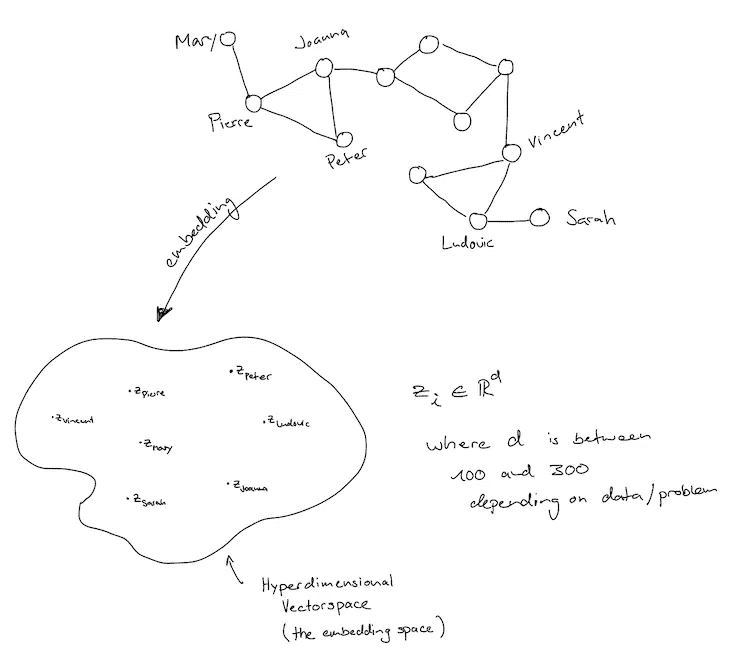 Mary
Joanna
Pierre
Peter
Vincent
Ludovic
Sarah
embedding
z Peter
z Pierre
z Vincent
z Ludovic
z Mary
z Joanna
z Sarah
z i ∈ ℝ^d
where d is between
100 and 300
depending on data/problem
Hyperdimensional
Vectorspace
(the embedding space)